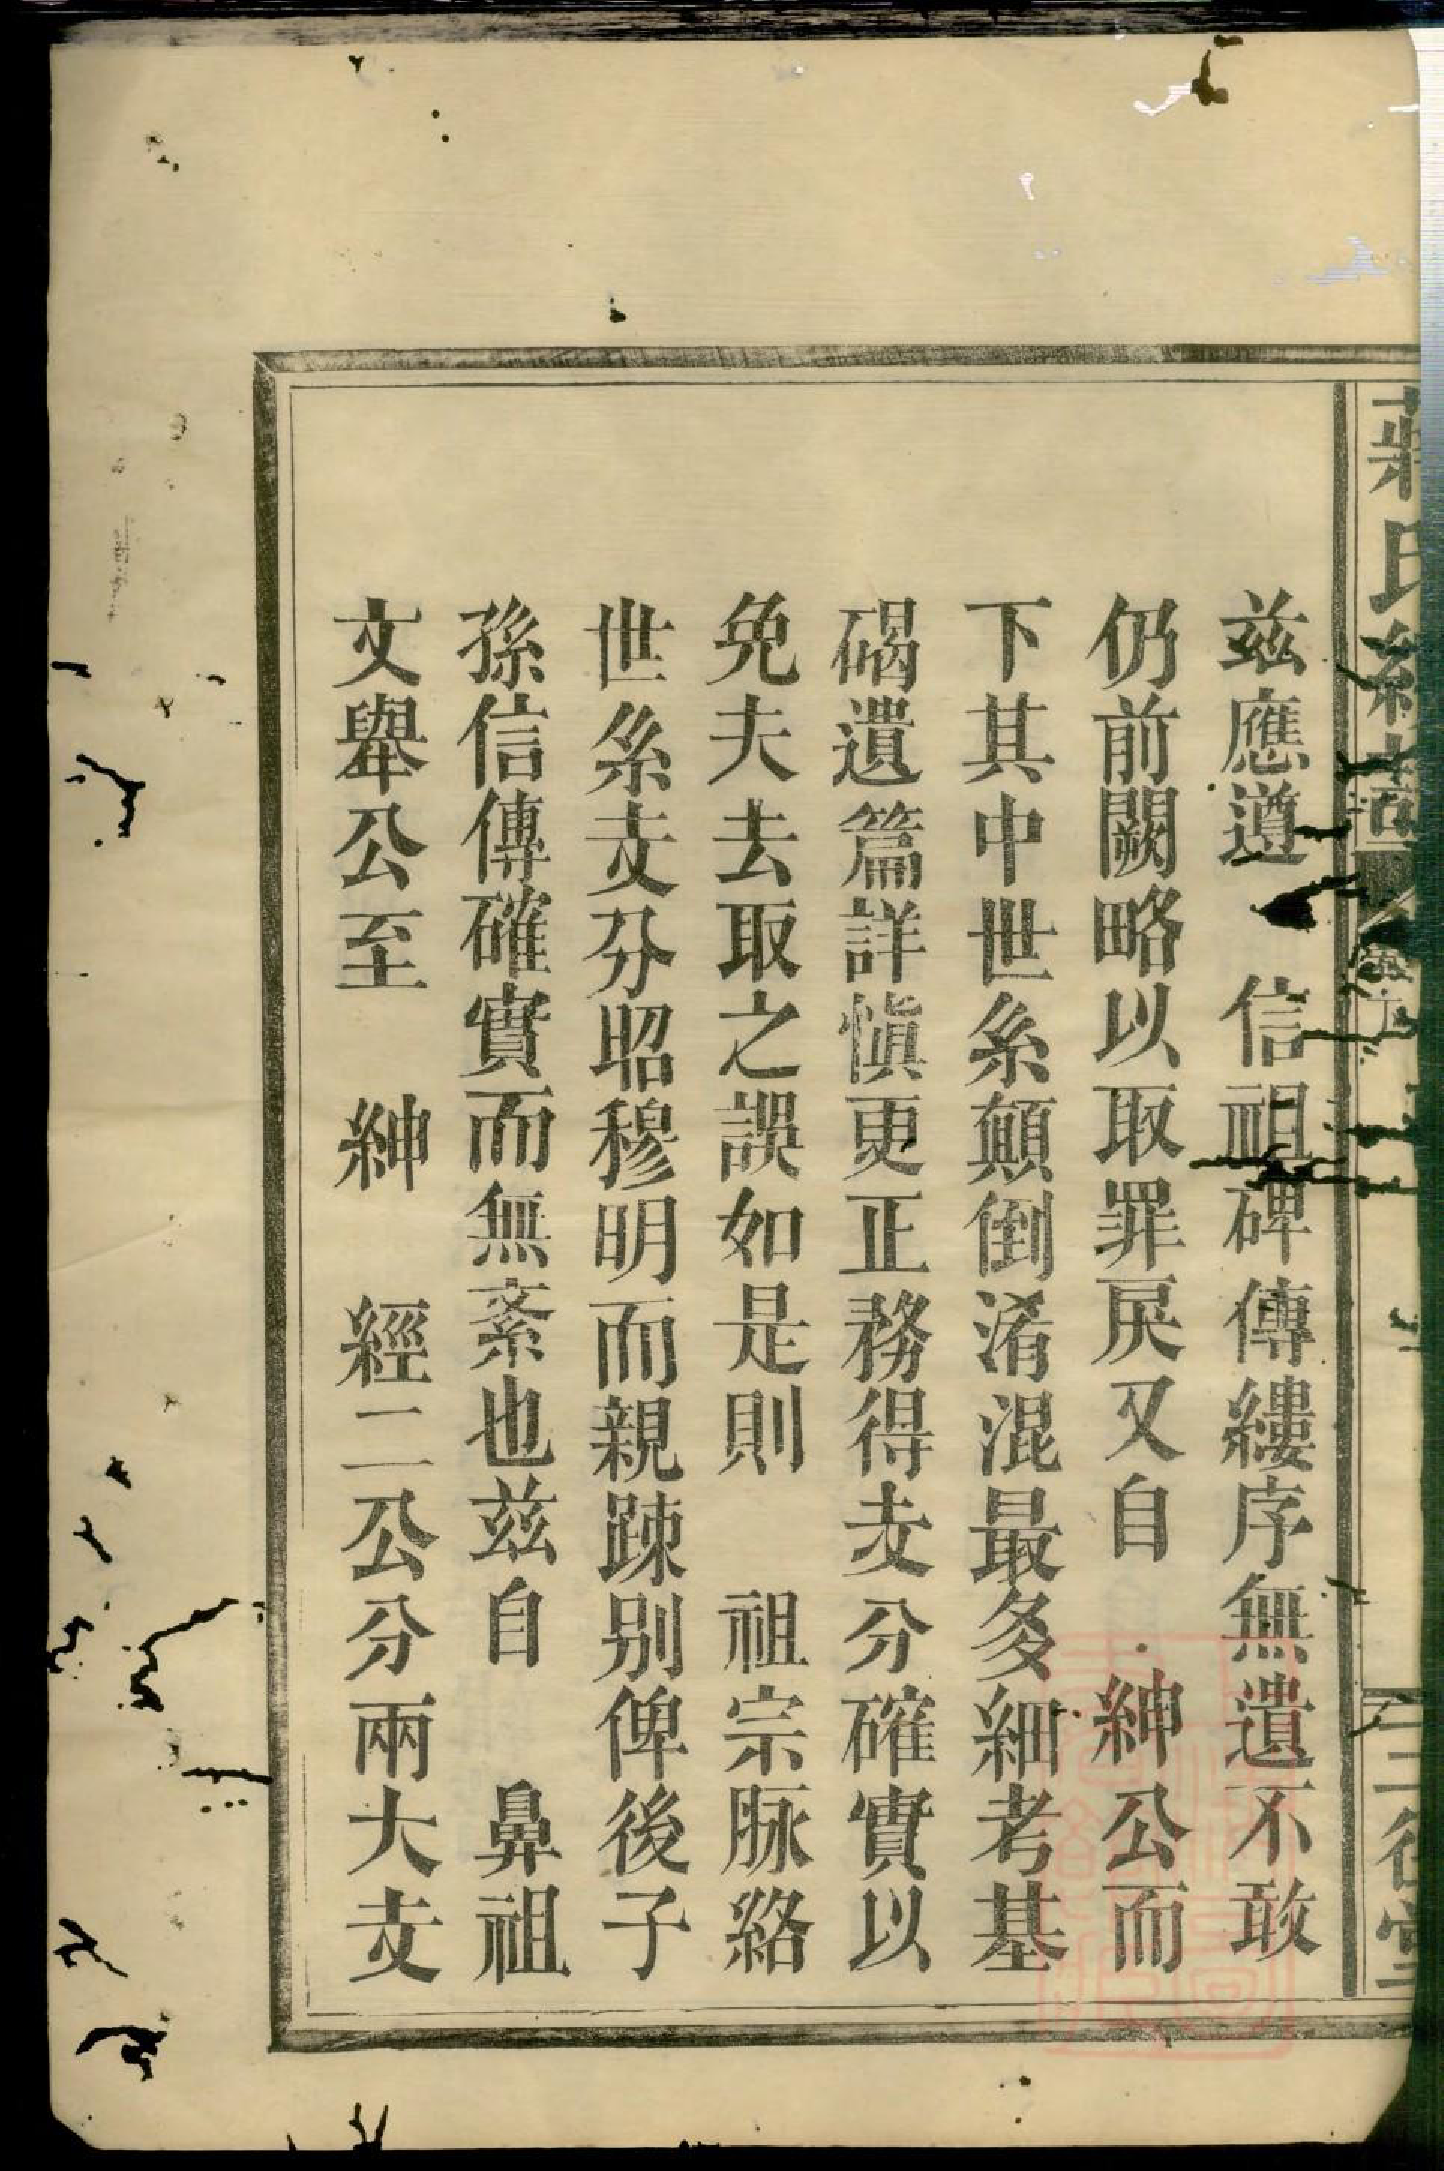 蔣氏
三徑堂
茲應遵　信祖碑傳縷序無遺不敢
仍前闕略以取罪戾又自　紳公而
下其中世系顛倒淆混最多細考基
碣遺篇詳慎更正務得支分確實以
免夫去取之誤如是則　祖宗脉絡
世系支分昭穆明而親踈别俾後子
孫信傳確實而無紊也茲自　鼻祖
文舉公至　紳　經二公分兩大支